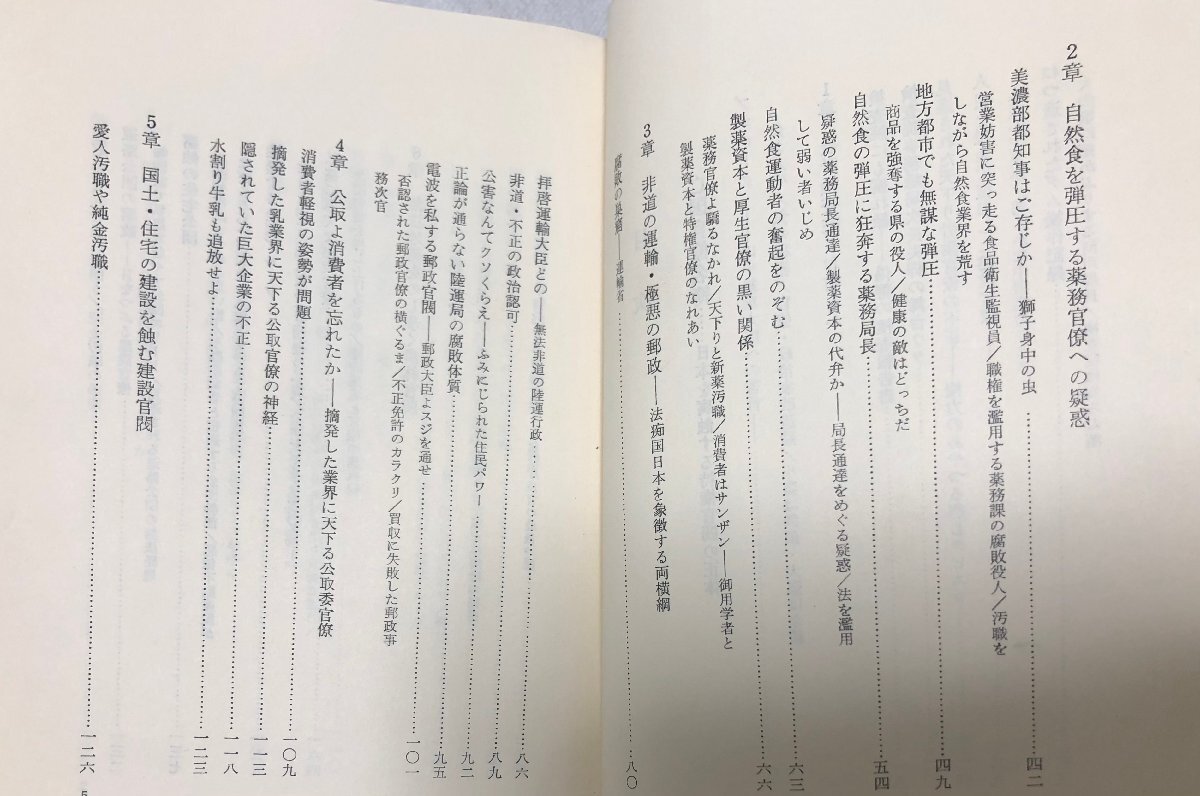 2章 自然食を弾圧する薬務官僚への疑惑
美濃部都知事はご存じか——獅子身中の虫……四二
営業妨害に突っ走る食品衛生監視員／職権を濫用する薬務課の腐敗役人／汚職を
しながら自然食業界を荒す
地方都市でも無謀な弾圧……四九
商品を強奪する県の役人／健康の敵はどっちだ
自然食の弾圧に狂奔する薬務局長……五四
疑惑の薬務局長通達／製薬資本の代弁か——局長通達をめぐる疑惑／法を濫用
して弱い者いじめ
自然食運動者の奮起をのぞむ……六三
製薬資本と厚生官僚の黒い関係……六六
薬務官僚よ驕るなかれ／天下りと新薬汚職／消費者はサンザン——御用学者と
製薬資本と特権官僚のなれあい
3章 非道の運輸・極悪の郵政——法痴国日本を象徴する両横綱
腐敗の巣窟——運輸省……八〇
拝啓運輸大臣どの——無法非道の陸運行政……八六
非道・不正の政治認可……八九
公害なんてクソくらえ——ふみにじられた住民パワー……九二
正論が通らない陸運局の腐敗体質……九五
電波を私する郵政官閥——郵政大臣よスジを通せ……一〇一
否認された郵政官僚の横ぐるま／不正免許のカラクリ／買収に失敗した郵政事
務次官
4章 公取よ消費者を忘れたか——摘発した業界に天下る公取委官僚
消費者軽視の姿勢が問題……一〇九
摘発した乳業界に天下る公取官僚の神経……一一三
隠されていた巨大企業の不正……一一八
水割り牛乳も追放せよ……一二三
5章 国土・住宅の建設を蝕む建設官閥
愛人汚職や純金汚職……一二六
5